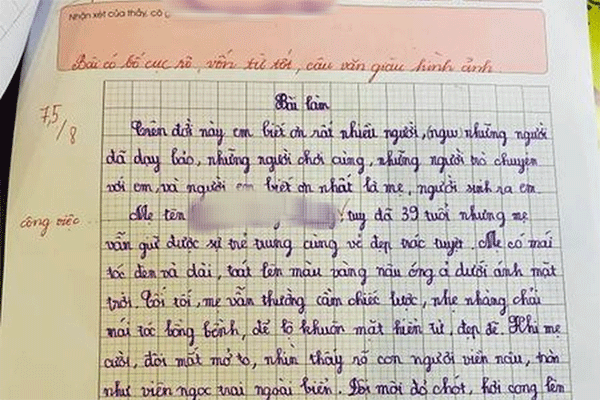 Nhận xét của thầy, cô
Bài có bố cục rõ, vốn từ tốt, câu văn giàu hình ảnh.
7,5/8
Bài làm
Trên đời này em biết ơn rất nhiều người, (người) những người
đã dạy bảo, những người chơi cùng, những người trò chuyện
với em, và người em biết ơn nhất là mẹ, người sinh ra em.
công việc
Mẹ tên tuy đã 39 tuổi nhưng mẹ
vẫn giữ được sự trẻ trung cùng vẻ đẹp trác tuyệt. Mẹ có mái
tóc đen và dài, toát lên màu vàng nâu óng ả dưới ánh mặt
trời. Tối tối, mẹ vẫn thường cầm chiếc lược, nhẹ nhàng chải
mái tóc bồng bềnh, để lộ khuôn mặt hiền từ, đẹp đẽ. Khi mẹ
cười, đôi mắt mở to, nhìn thấy rõ con người viền nâu, tròn
như viên ngọc trai ngoài biển. Đôi môi đỏ chót, hơi cong lên